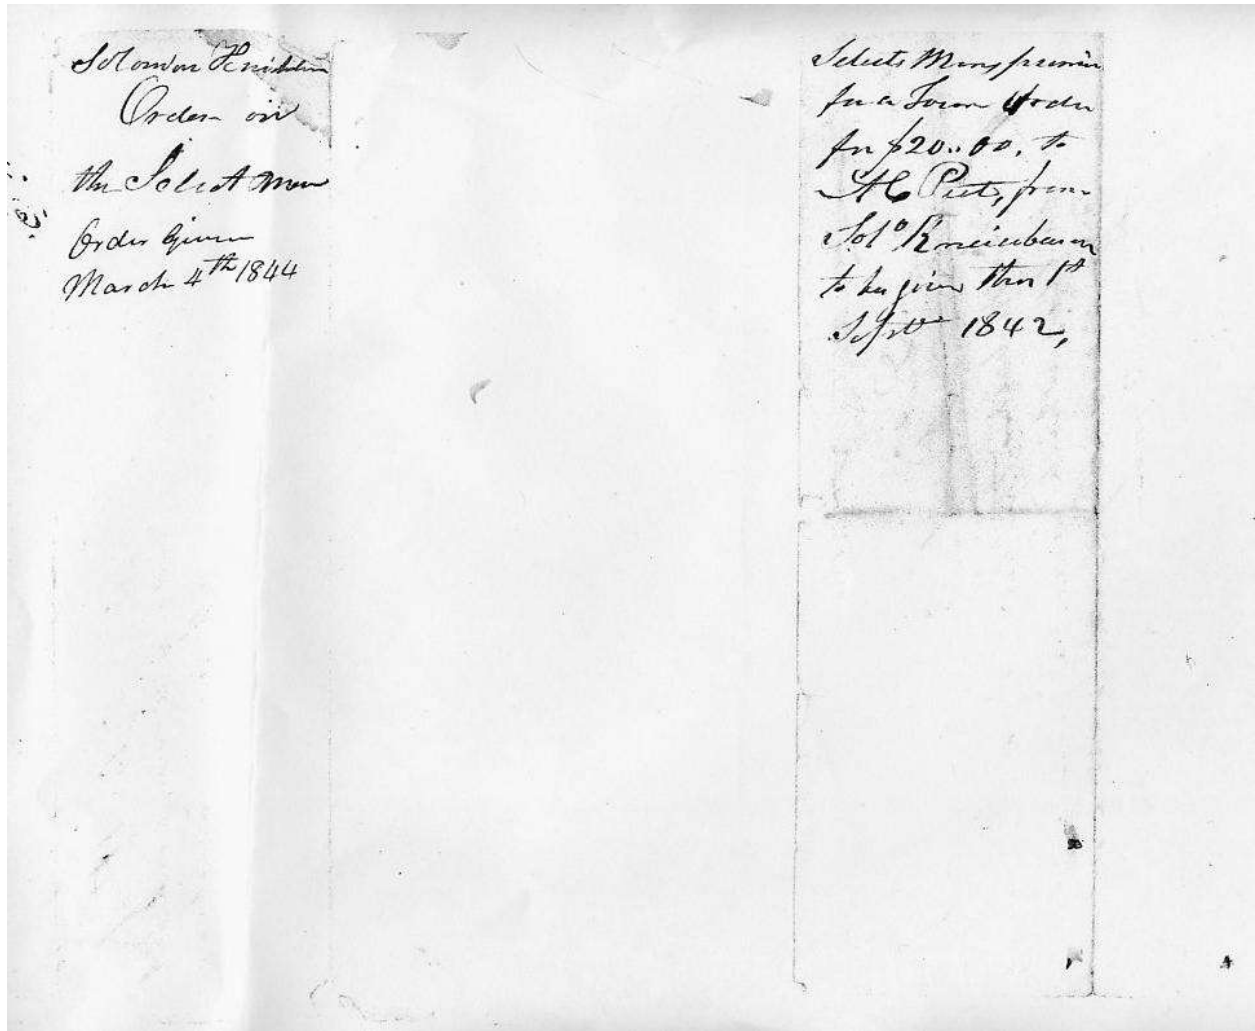 Solomon
Order on
the Select Men
Order Given
March 4th 1844
Selects Mens
for a Town Order
for $20..00, to
A C Pitts, from
Solo
to be given the 1st
Septr 1842,